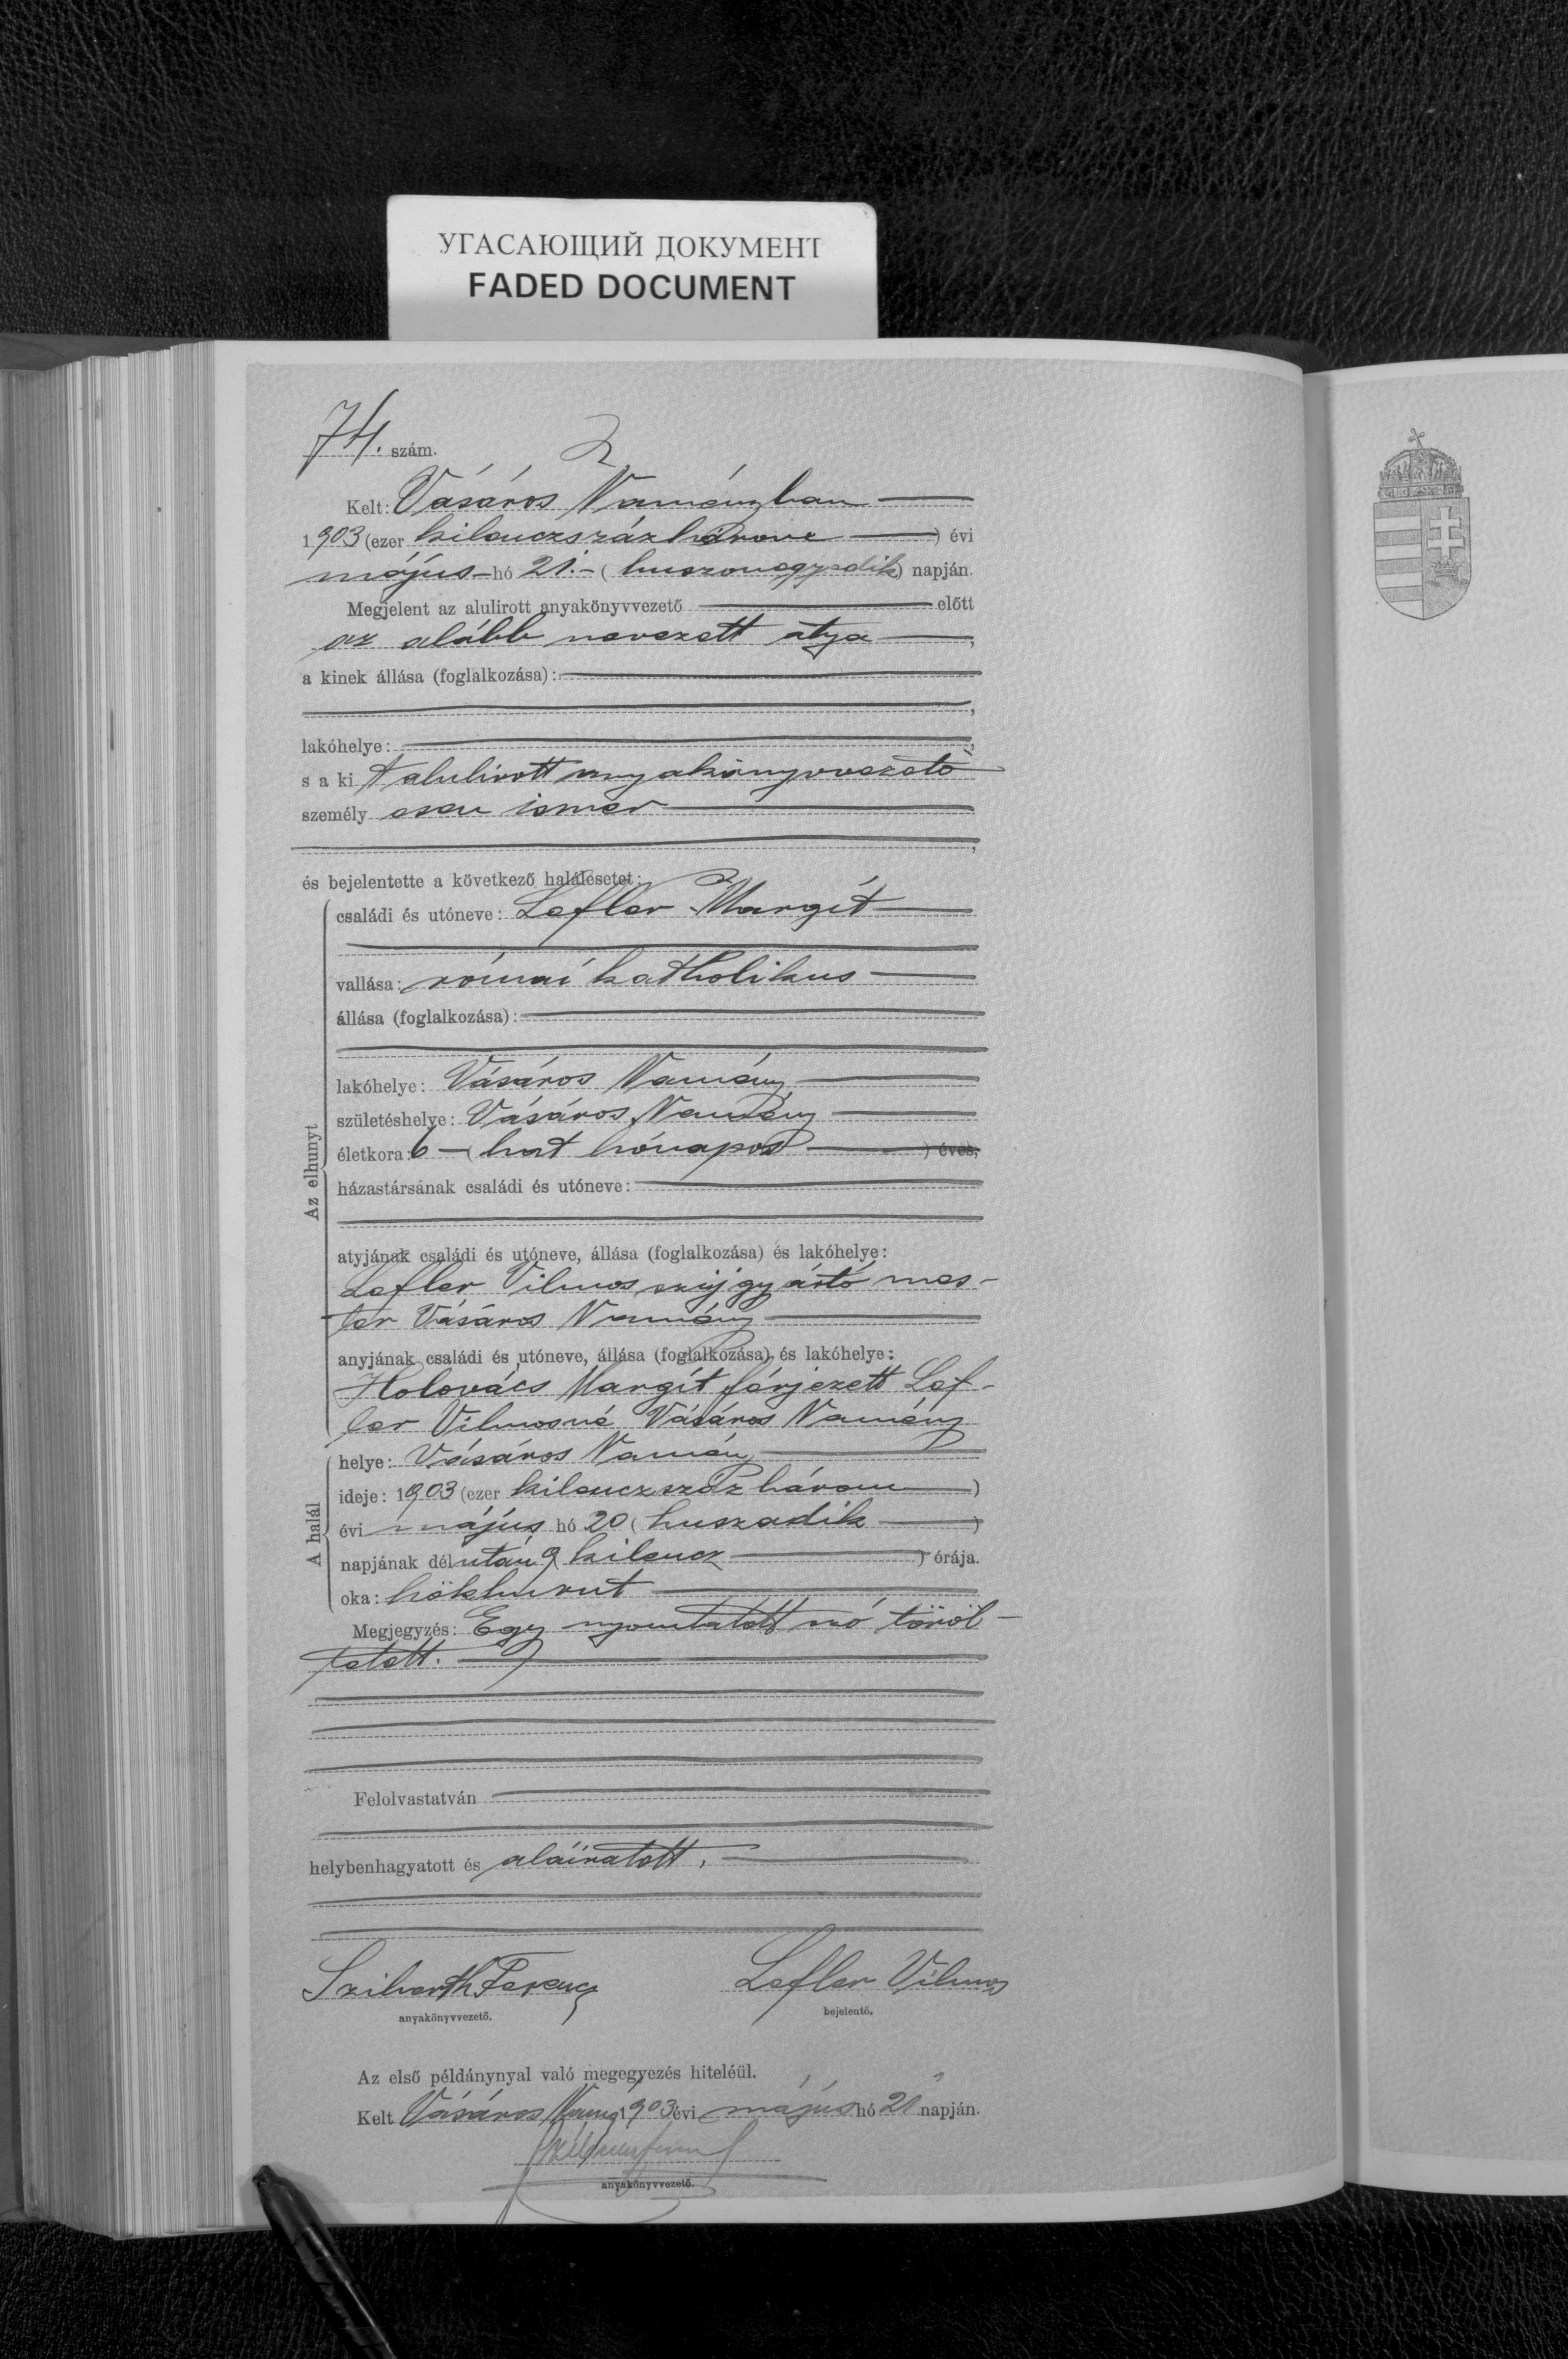 УГАСАЮЩИЙ ДОКУМЕНТ
FADED DOCUMENT
74. szám.
Kelt: Vásáros Naményban
1903 (ezer kilenczszázhárom) évi
május hó 21. (huszonegyedik) napján.
Megjelent az alulirott anyakönyvvezető előtt
az alább nevezett atya,
a kinek állása (foglalkozása):
,
lakóhelye: ,
s a kit alulirott anyakönyvvezető
személyesen ismer
,
és bejelentette a következő halálesetet:
Az elhunyt
családi és utóneve: Lefler Margit
vallása: római katholikus
állása (foglalkozása):
lakóhelye: Vásáros Namény
születéshelye: Vásáros Namény
életkora: 6 (hat hónapos) éves,
házastársának családi és utóneve:
atyjának családi és utóneve, állása (foglalkozása) és lakóhelye:
Lefler Vilmos szijgyártó mes-
ter Vásáros Namény
anyjának családi és utóneve, állása (foglalkozása) és lakóhelye:
Holovács Margit férjezett Lef-
ler Vilmosné Vásáros Namény
A halál
helye: Vásáros Namény
ideje: 1903 (ezer kilenczszáz három)
évi május hó 20 (huszadik)
napjának délután 9 kilencz) órája.
oka: hökhurut
Megjegyzés: Egy nyomtatott szó töröl-
tetett.
Felolvastatván
helybenhagyatott és aláiratott.
Ferencz Lefler Vilmos
anyakönyvvezető. bejelentő.
Az első példánynyal való megegyezés hiteléül.
Kelt Vásáros Namé 1903 évi május hó 21 napján.
anyakönyvvezető.